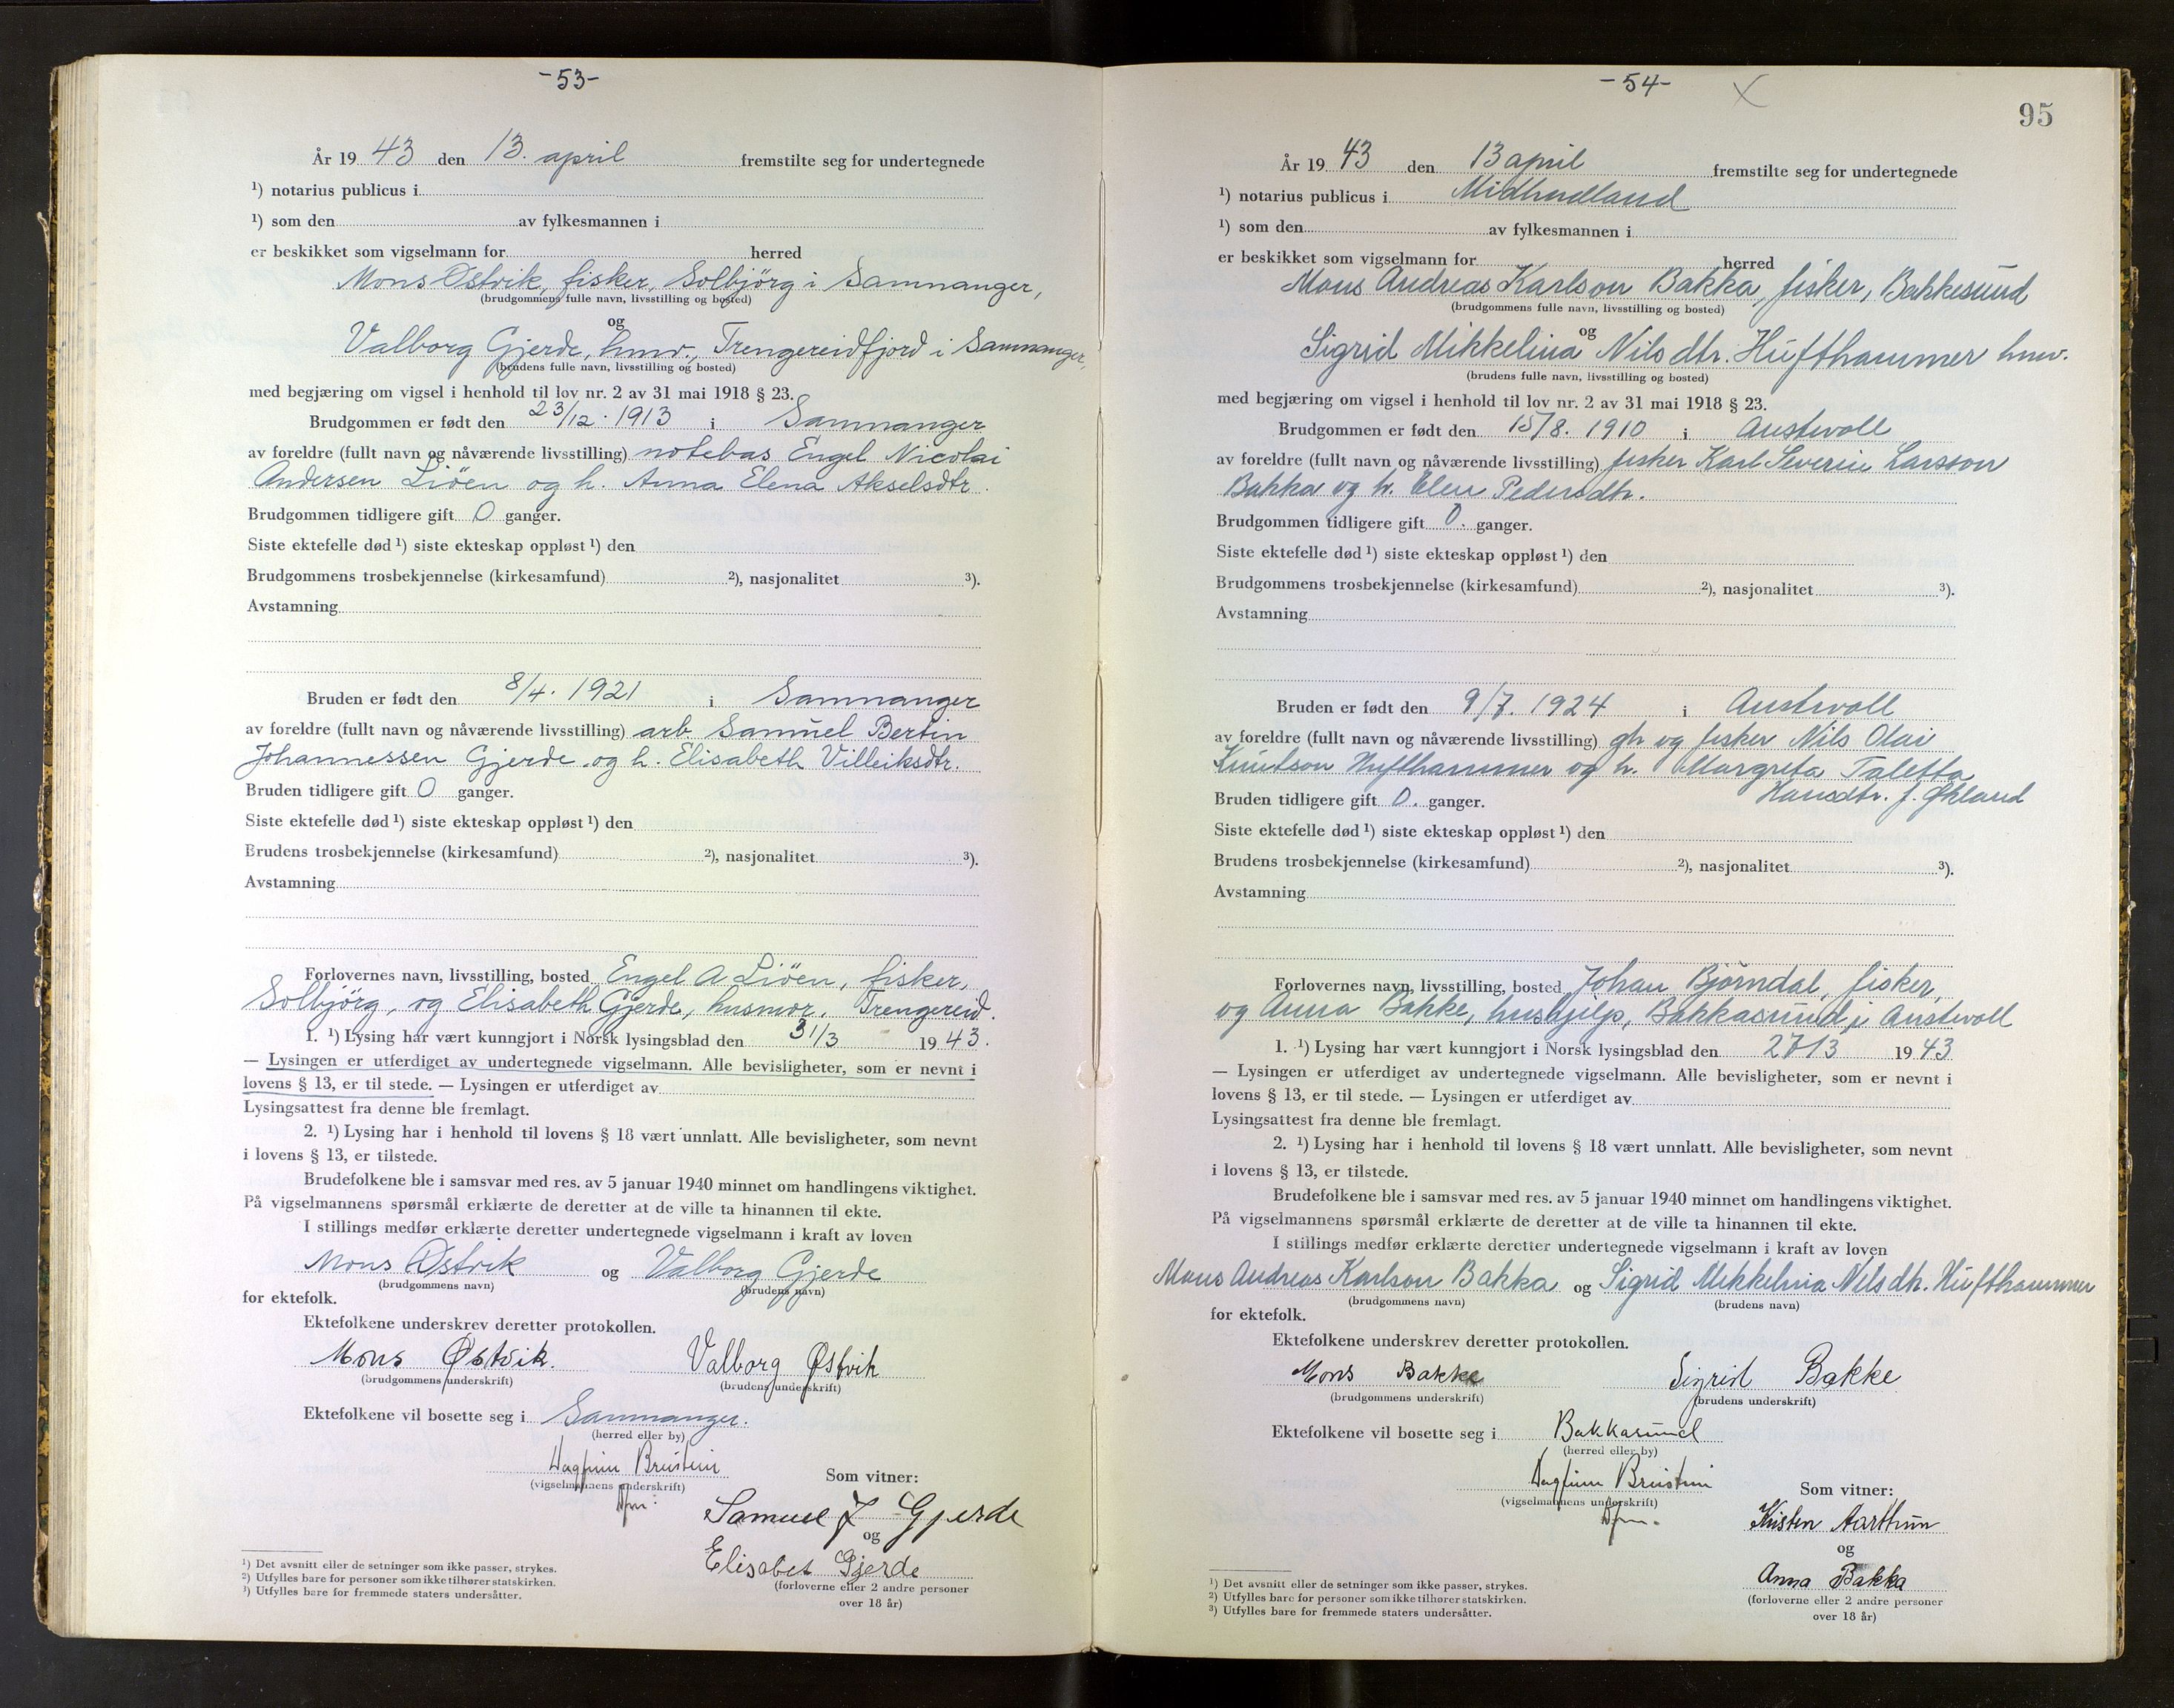 -53-
År 19 43 den 13. april fremstilte seg for undertegnede
¹) notarius publicus i
¹) som den av fylkesmannen i
er beskikket som vigselmann for herred
Mons Østvik, fisker, Solbjörg i Samnanger,
(brudgommens fulle navn, livsstilling og bosted)
og
Valborg Gjerde, hmv., Trengereidfjord i Samnanger,
(brudens fulle navn, livsstilling og bosted)
med begjæring om vigsel i henhold til lov nr. 2 av 31 mai 1918 § 23.
Brudgommen er født den 23/12. 1913 i Samnanger
av foreldre (fullt navn og nåværende livsstilling) notebas Engel Nicolai
Andersen Liöen og h. Anna Elena Akselsdtr.
Brudgommen tidligere gift 0 ganger.
Siste ektefelle død ¹) siste ekteskap oppløst ¹) den
Brudgommens trosbekjennelse (kirkesamfund) ²), nasjonalitet ³).
Avstamning
Bruden er født den 8/4. 1921 i Samnanger
av foreldre (fullt navn og nåværende livsstilling) arb. Samuel Bertin
Johannessen Gjerde og h. Elisabeth Villeiksdtr.
Bruden tidligere gift 0 ganger.
Siste ektefelle død ¹) siste ekteskap oppløst ¹) den
Brudens trosbekjennelse (kirkesamfund) ²), nasjonalitet ³).
Avstamning
Forlovernes navn, livsstilling, bosted Engel A Liöen, fisker,
Solbjörg, og Elisabeth Gjerde, husmor, Trengereid.
1. ¹) Lysing har vært kunngjort i Norsk lysingsblad den 31/3 19 43.
— Lysingen er utferdiget av undertegnede vigselmann. Alle bevisligheter, som er nevnt i
lovens § 13, er til stede. — Lysingen er utferdiget av
Lysingsattest fra denne ble fremlagt.
2. ¹) Lysing har i henhold til lovens § 18 vært unnlatt. Alle bevisligheter, som nevnt
i lovens § 13, er tilstede.
Brudefolkene ble i samsvar med res. av 5 januar 1940 minnet om handlingens viktighet.
På vigselmannens spørsmål erklærte de deretter at de ville ta hinannen til ekte.
I stillings medfør erklærte deretter undertegnede vigselmann i kraft av loven
Mons Østvik og Valborg Gjerde
(brudgommens navn) (brudens navn)
for ektefolk.
Ektefolkene underskrev deretter protokollen.
Mons Østvik. Valborg Østvik
(brudgommens underskrift) (brudens underskrift)
Ektefolkene vil bosette seg i Samnanger.
(herred eller by)
Dagfinn Breistein
(vigselmannens underskrift)
Dfm.
Som vitner:
Samuel J Gjerde
og
Elisabet Gjerde
(forloverne eller 2 andre personer
over 18 år)
¹) Det avsnitt eller de setninger som ikke passer, strykes.
²) Utfylles bare for personer som ikke tilhører statskirken.
³) Utfylles bare for fremmede staters undersåtter.
-54-
95
År 19 43 den 13 april fremstilte seg for undertegnede
¹) notarius publicus i Midhordland
¹) som den av fylkesmannen i
er beskikket som vigselmann for herred
Mons Andreas Karlson Bakka, fisker, Bakkesund
(brudgommens fulle navn, livsstilling og bosted)
og
Sigrid Mikkelina Nilsdtr. Hufthammer hmv.
(brudens fulle navn, livsstilling og bosted)
med begjæring om vigsel i henhold til lov nr. 2 av 31 mai 1918 § 23.
Brudgommen er født den 15/8. 1910 i Austevoll
av foreldre (fullt navn og nåværende livsstilling) fisker Karl Severin Larsson
Bakka og h. Elen Pedersdtr.
Brudgommen tidligere gift 0. ganger.
Siste ektefelle død ¹) siste ekteskap oppløst ¹) den
Brudgommens trosbekjennelse (kirkesamfund) ²), nasjonalitet ³).
Avstamning
Bruden er født den 9/7. 1924 i Austevoll
av foreldre (fullt navn og nåværende livsstilling) gb og fisker Nils Olai
Knutson Hufthammer og h. Margreta Taletta
Hansdtr. f. Økland
Bruden tidligere gift 0. ganger.
Siste ektefelle død ¹) siste ekteskap oppløst ¹) den
Brudens trosbekjennelse (kirkesamfund) ²), nasjonalitet ³).
Avstamning
Forlovernes navn, livsstilling, bosted Johan Björndal, fisker,
og Anna Bakke, hushjelp, Bakkasund i Austevoll
1. ¹) Lysing har vært kunngjort i Norsk lysingsblad den 27/3 19 43
— Lysingen er utferdiget av undertegnede vigselmann. Alle bevisligheter, som er nevnt i
lovens § 13, er til stede. — Lysingen er utferdiget av
Lysingsattest fra denne ble fremlagt.
2. ¹) Lysing har i henhold til lovens § 18 vært unnlatt. Alle bevisligheter, som nevnt
i lovens § 13, er tilstede.
Brudefolkene ble i samsvar med res. av 5 januar 1940 minnet om handlingens viktighet.
På vigselmannens spørsmål erklærte de deretter at de ville ta hinannen til ekte.
I stillings medfør erklærte deretter undertegnede vigselmann i kraft av loven
Mons Andreas Karlson Bakka og Sigrid Mikkelina Nilsdtr. Hufthammer
(brudgommens navn) (brudens navn)
for ektefolk.
Ektefolkene underskrev deretter protokollen.
Mons Bakke Sigrid Bakke
(brudgommens underskrift) (brudens underskrift)
Ektefolkene vil bosette seg i Bakkasund
(herred eller by)
Dagfinn Breistein
(vigselmannens underskrift)
Dfm.
Som vitner:
Kristen Aarthun
og
Anna Bakka
(forloverne eller 2 andre personer
over 18 år)
¹) Det avsnitt eller de setninger som ikke passer, strykes.
²) Utfylles bare for personer som ikke tilhører statskirken.
³) Utfylles bare for fremmede staters undersåtter.